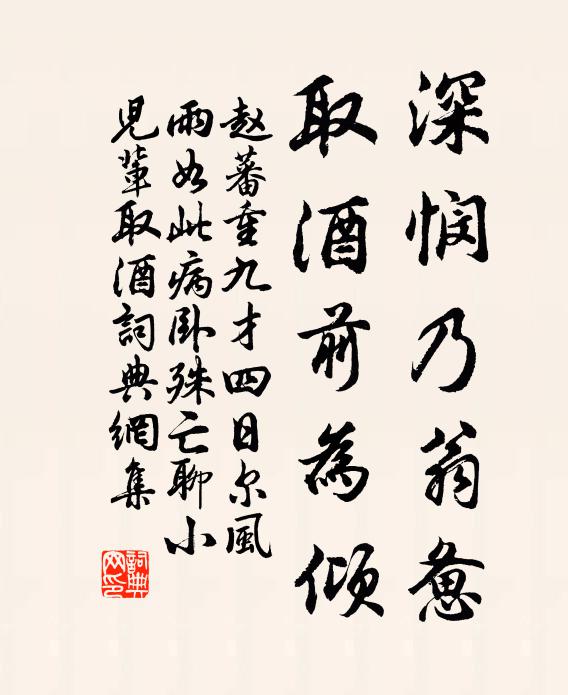 深悯乃翁惫
取酒前為傾
赵蕃重九才四日尔風
雨如此病卧殊亡聊小
児輩取酒詞典網集
詞典网印